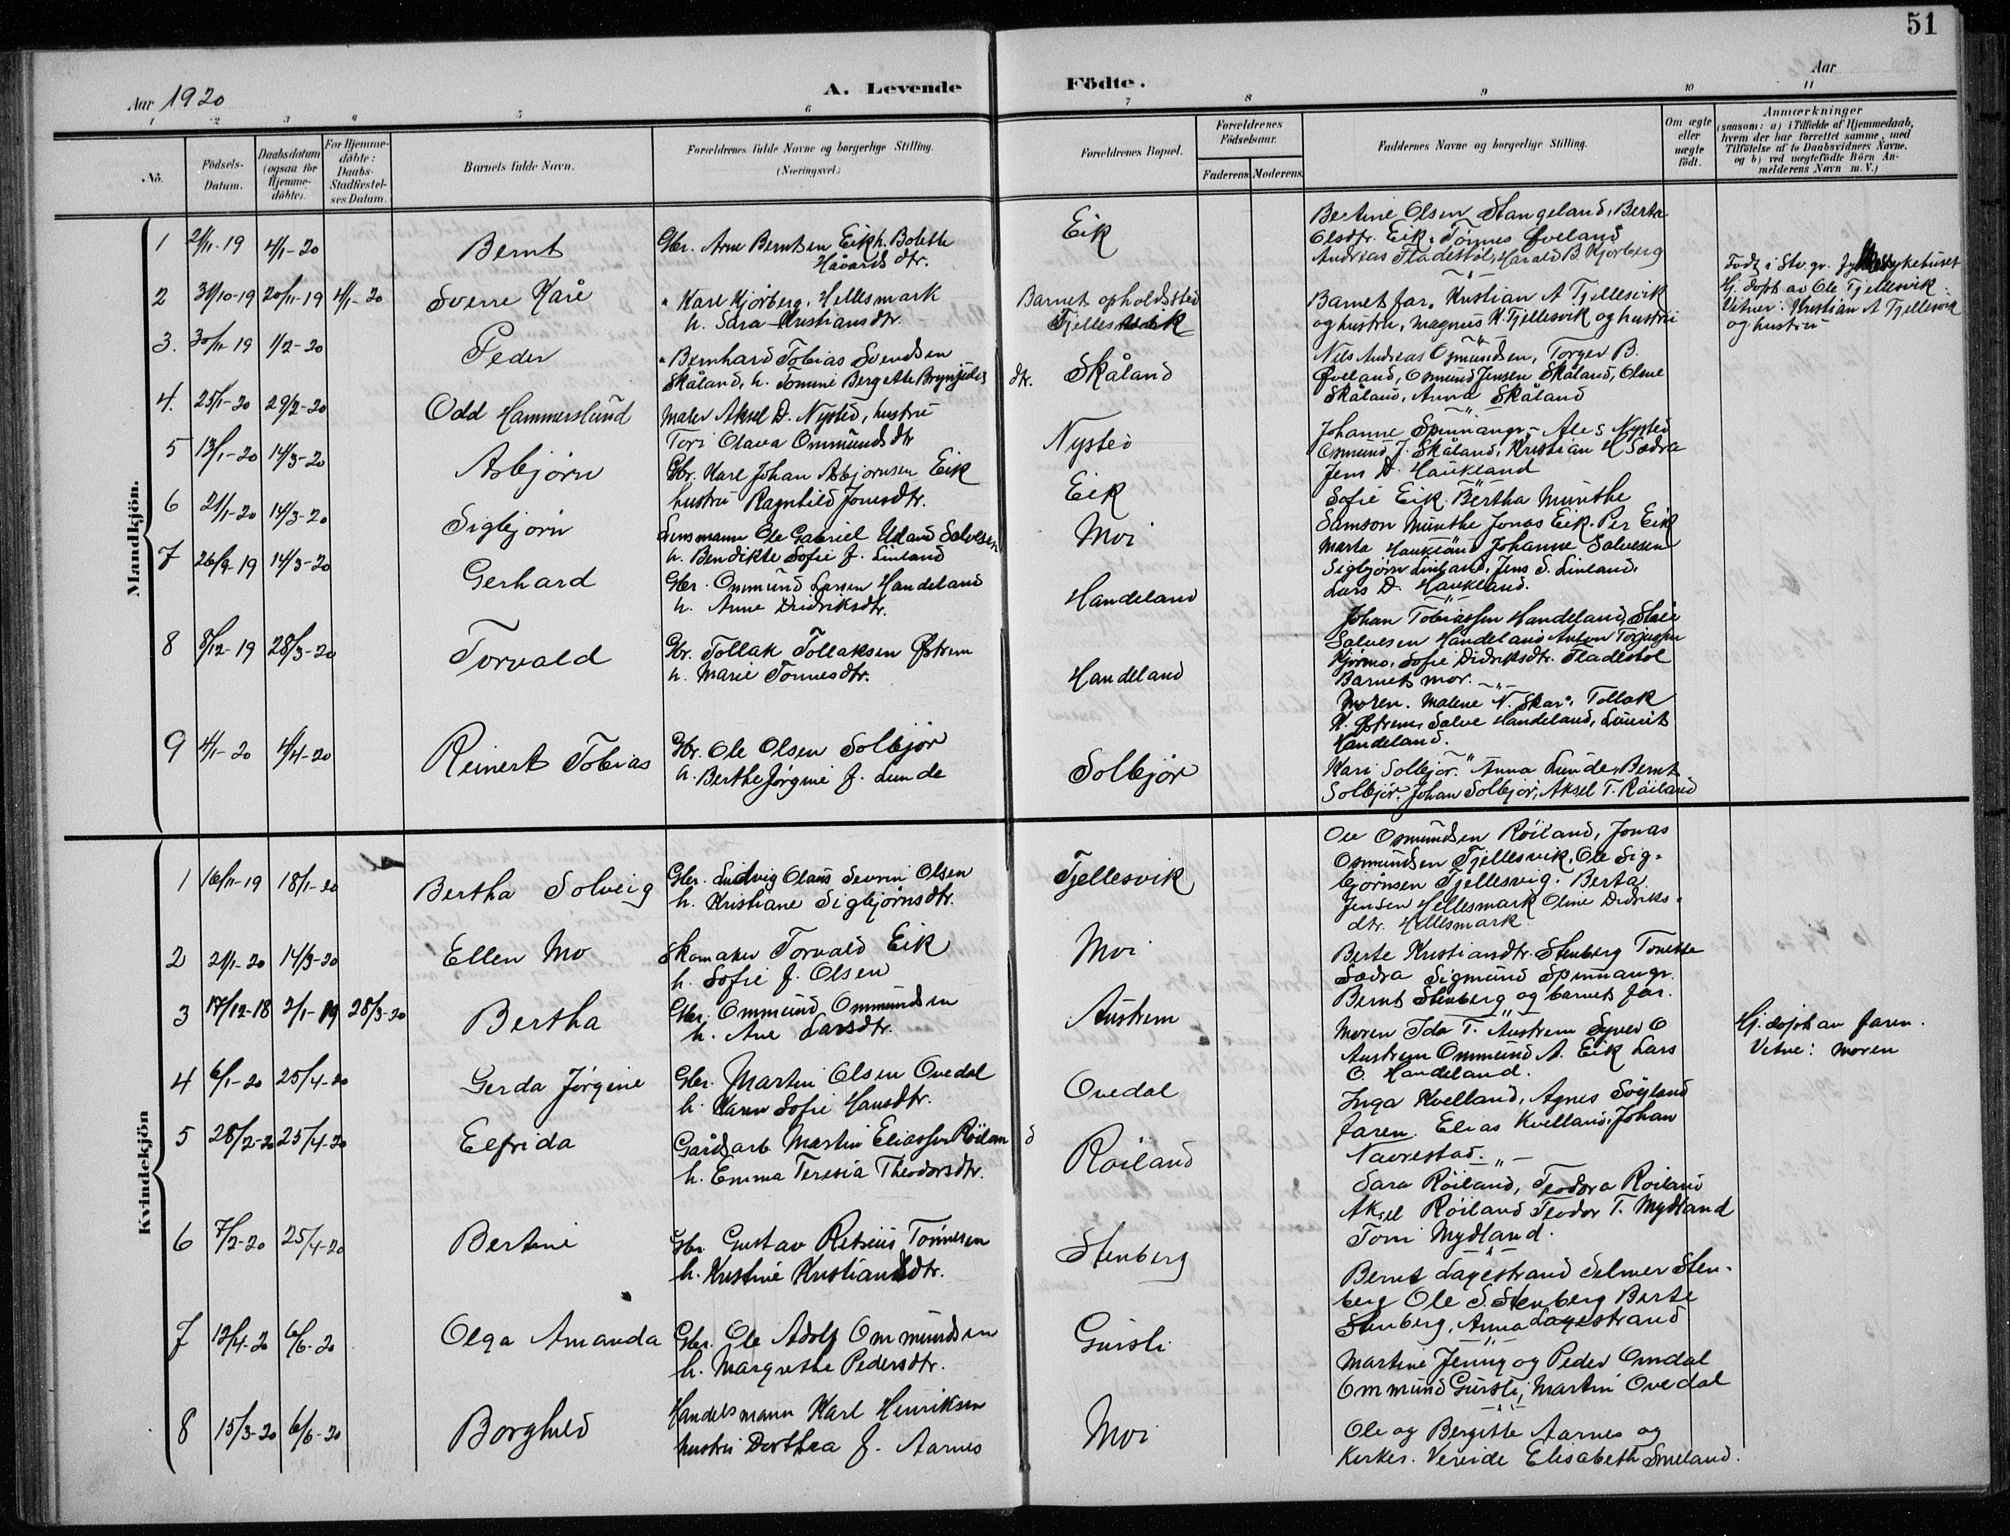 51
Aar 1920
A. Levende
Födte.
Aar
1 2 3 4 5 6 7 8 9 10 11
No.
Födsels-Datum.
Daabsdatum (ogsaa for Hjemme-döbte).
For Hjemme-döbte: Daabs-Stadfæstel-ses Datum.
Barnets fulde Navn.
Forældrenes fulde Navne og borgerlige Stilling. (Næringsvei.)
Forældrenes Bopæl.
Forældrenes Födselsaar.
Faderens.
Moderens.
Faddernes Navne og borgerlige Stilling.
Om ægte eller uægte födt.
Anmærkninger
(saasom: a) i Tilfælde af Hjemmedaab, hvem der har forrettet samme, med Tilföielse af to Daabsvidners Navne, og b) ved uægtefödte Börn An-melderens Navn m. V.)
Mandkjön.
1 2/11-19 4/1-20 Bernt Gbr. Arne Berntsen Eik h. Bolette Håvards dtr. Eik
Bertine Olsen Stangeland, Berta
Olsdtr. Eik, Tönnes Øveland
Andreas Fladestöl, Harald B. Kjörberg
2 31/10-19 20/11-19 4/1-20 Sverre Kåre " Karl Kjörberg, Hellesmark h. Sara Kristiansdtr. Barnet opholdsted Fjellesvik
Barnet far. Kristian A Fjellesvik
og hustru, Magnus K Fjellesvik og hustru
Födt i Stv.gr. sykehuset
Hj. döpt av Ole Fjellesvik.
Vitner: Kristian A Fjellesvik
og hustru
3. 30/11-19 1/2-20 Peder " Bernhard Tobias Svendsen Skåland, h. Tomine Bergette Brynjulvs dtr. Skåland
Nils Andreas Osmundsen, Torger B.
Øveland, Osmund Jensen Skåland, Oline
Skåland, Anna Skåland
4. 25/1-20 29/2-20 Odd Hammerslund Maler Aksel D. Nysted, hustru Tori Olava Ommunds dtr Nysted
Johanne Spinnangr - Ales Nysted
Osmund J. Skåland, Kristian H Sædra
Jens D. Haukland
5 13/1-20 14/3-20 Asbjörn Gbr. Karl Johan Asbjornsen Eik hustru Ragnhild Jonasdtr. Eik
Sofie Eik. Bertha Munthe
Samson Munthe Jonas Eik. Per Eik
6 21/1-20 14/3-20 Sigbjörn Lensmann Ole Gabriel Udland Salvesen h. Bendikte Sofie f. Linland Moi
Marta Haukland Johanne Salvesen
Sigbjörn Linland, Jens S. Linland,
Lars D. Haukland.
7 26/9-19 14/3-20 Gerhard Gbr. Ommund Larsen Handeland h. Anne Didriksdtr. Handeland
Johan Tobiassen Handeland,
Salvesen Handeland Anton Torjussen
Kjörmo, Sofie Didriksdtr. Fladestol
Barnets mor.
8 8/12-19 28/3-20 Torvald Gbr. Tollak Tollaksen Østrem h. Marie Tönnesdtr. Handeland
Moren. Malene N. Skår. Tollak
K. Østrem, Salve Handeland,
Handeland.
9 4/1-20 4/4-20 Reinert Tobias Gbr. Ole Olsen Solbjör h. Berthe Jörgine f. Lunde Solbjör
Kari Solbjör. Anna Lunde, Bernt
Solbjör. Johan Solbjör, Aksel T. Röiland
Kvindekjön
1 16/11-19 18/1-20 Bertha Solveig Gbr. Ludvig Olaus Severin Olsen h. Kristiane Sigbjörnsdtr. Fjellesvik
Ole Osmundsen Röiland, Jonas
Osmundsen Fjellesvik, Ole Sig-
björnsen Fjellesvig. Berta
Jensen Hellesmark Oline Didriks-
dtr. Hellesmark
2 21/1-20 14/3-20 Ellen Mo Skomaker Torvald Eik h. Sofie f. Olsen Moi
Berte Kristiansdtr. Stenberg Tonette
Sædra Sigmund Spinnangr.
Bernt Stenberg og barnets far.
3 17/12-18 2/1-19 28/3-20 Bertha Gbr. Ommund Ommundsen h. Ane Larsdtr. Austrem
Moren Ida T. Austrem Syver O
Austrem Ommund A. Eik Lars
O. Handeland.
Hj. döpt av faren.
Vitne: moren
4 6/1-20 25/4-20 Gerda Jörgine Gbr. Martin Olsen Ovedal h. Karen Sofie Hansdtr. Ovedal
Inga Kvelland, Agnes Söyland
faren. Elias Kvelland, Johan
Naurestad.
5 28/2-20 25/4-20 Elfrida Gårdsarb. Martin Eliassen Röiland h. Emma Teresia Theodorsdtr. Röiland
Sara Röiland, Teodora Röiland
Aksel Röiland Teodor T. Mydland
Toni Mydland.
6 7/2-20 25/4-20 Bertine Gbr Gustav Retsius Tönnesen h. Kristine Kristiansdtr. Stenberg
Bernt Lagestrand Selmer Sten-
berg Ole S. Stenberg Berte
Stenberg, Anna Lagestrand
7 12/4-20 6/6-20 Olga Amanda Gbr. Ole Adolf Ommundsen h. Margrethe Pedersdtr. Gursli
Martine Jenny og Peder Omdal
Ommund Gursli, Martin Ovedal
8 15/3-20 6/6-20 Borghild Handelsmann Karl Henriksen hustru Dorthea f. Aarnes Moi
Ole og Bergitte Aarnes og
Kirkes. Vereide Elisabeth Smeland.